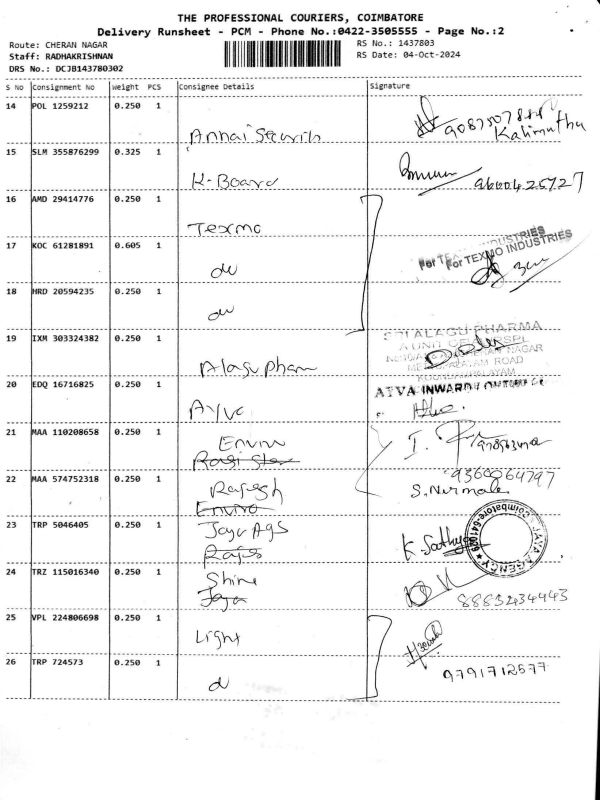 THE PROFESSIONAL COURIERS, COIMBATORE
Delivery Runsheet - PCM - Phone No.:0422-3505555 - Page No.:2
Route: CHERAN NAGAR
RS No.: 1437803
Staff: RADHAKRISHNAN
RS Date: 04-Oct-2024
DRS No.: DCJB143780302
S No Consignment No Weight PCS Consignee Details Signature
14 POL 1259212 0.250 1
Kalimuthu
15 SLM 355876299 0.325 1
K-Board
9600425727
16 AMD 29414776 0.250 1
Texmo
17 KOC 61281891 0.605 1
For TEXMO INDUSTRIES
18 HRD 20594235 0.250 1
19 IXM 303324382 0.250 1
SRI ALAGU PHARMA
Alagu pharm
20 EDQ 16716825 0.250 1
Ayva
21 MAA 110208658 0.250 1
Enviro
22 MAA 574752318 0.250 1
9360064797
Rajesh
S. Nirmala
Enviro
23 TRP 5046405 0.250 1
Jaya Ags
K. Sathya
JAYA AGENCY
Coimbatore-641029
24 TRZ 115016340 0.250 1
Shine
Jaya
8883234443
25 VPL 224806698 0.250 1
Light
26 TRP 724573 0.250 1
9791712577